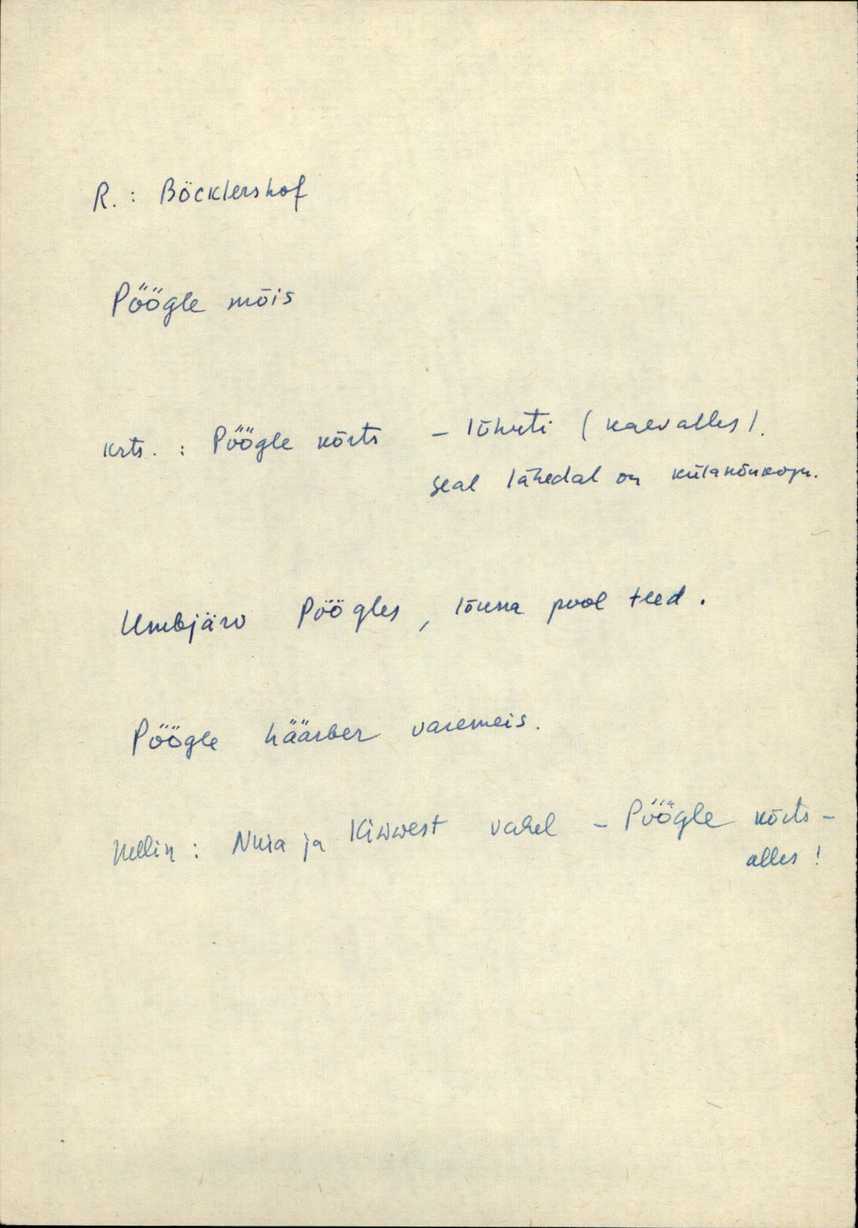 R. : Böcklershof
Pöögle mõis
krts. : Pöögle kõrts – lõhuti (kaev alles).
Seal lähedal on külanõukogu.
Umbjärv Pöögles, lõuna pool teed.
Pöögle häärber varemeis.
Mellin : Nuia ja Kiwwest vahel – Pöögle kõrts –
alles!